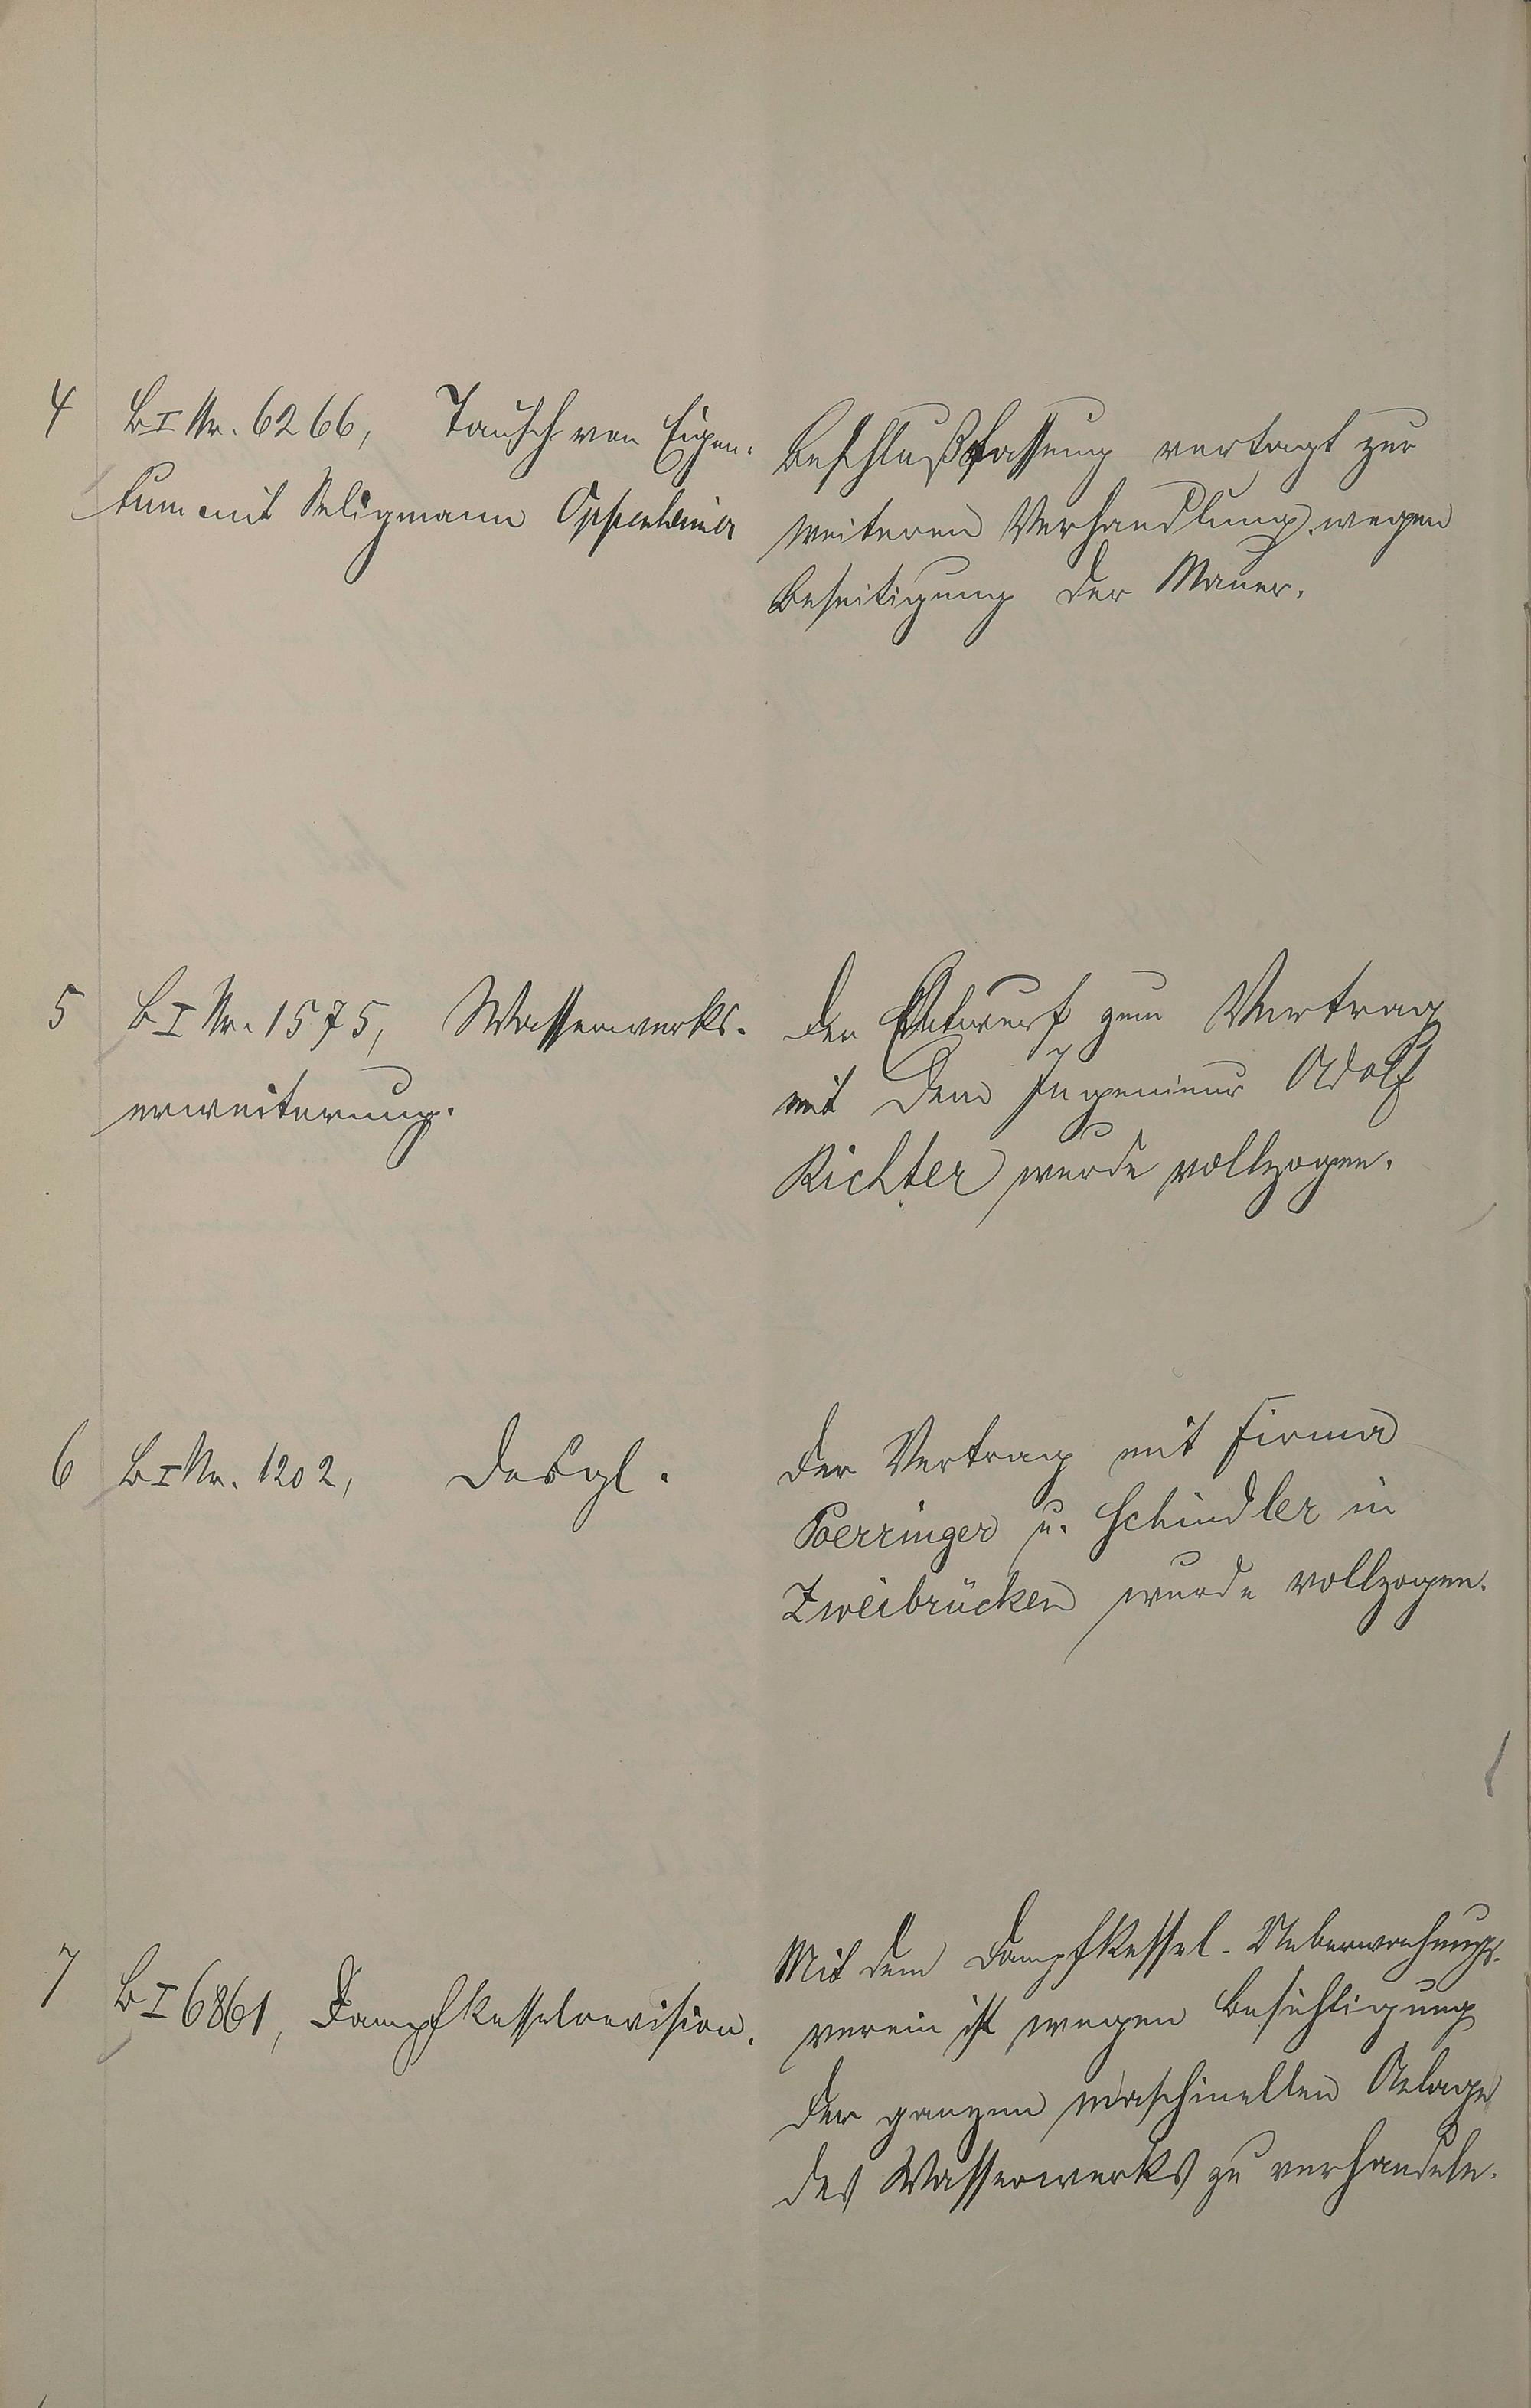 4
B I Nr. 6266, Tausch von Eigen-
tum mit Seligmann Oppenheimer
Beschlußfassung vertagt zur
weiteren Verhandlung wegen
Beseitigung der Mauer.
5
B I Nr. 1575, Wasserwerks-
erweiterung.
Der Entwurf zum Vertrag
mit dem Ingenieur Adolf
Richter wurde vollzogen.
6
B I Nr. 1202, Desgl.
Der Vertrag mit Firma
Poerringer u. Schindler in
Zweibrücken wurde vollzogen.
7
B I 6861, Dampfkesselrevision.
Mit dem Dampfkessel-Ueberwachungs-
verein ist wegen Besichtigung
der ganzen maschinellen Anlage
des Wasserwerks zu verhandeln.